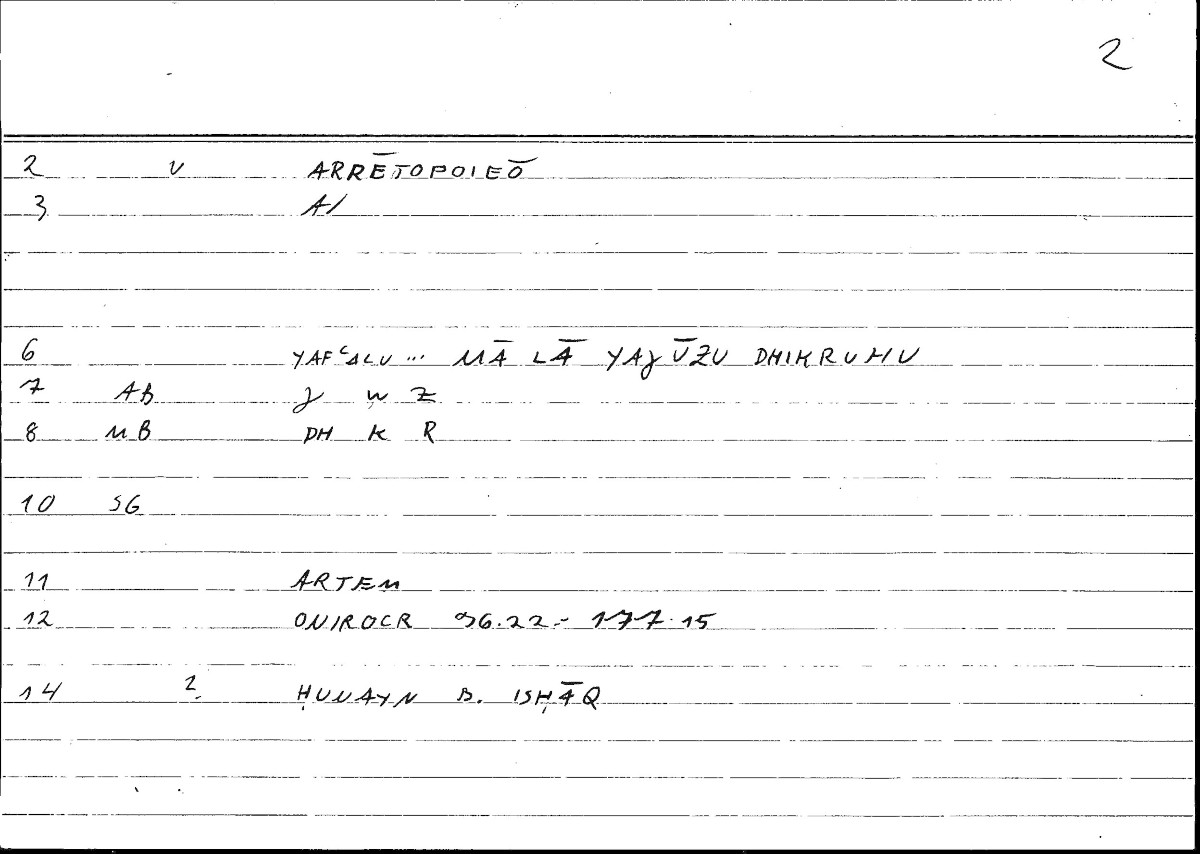 2
2 V ARRĒTOPOIEŌ
3 A/
6 YAFʿALU ... MĀ LĀ YAJŪZU DHIKRUHU
7 AB J W Z
8 MB DH K R
10 SG
11 ARTEM
12 ONIROCR 96.22 - 177.15
14 2 ḤUNAYN B. ISḤĀQ